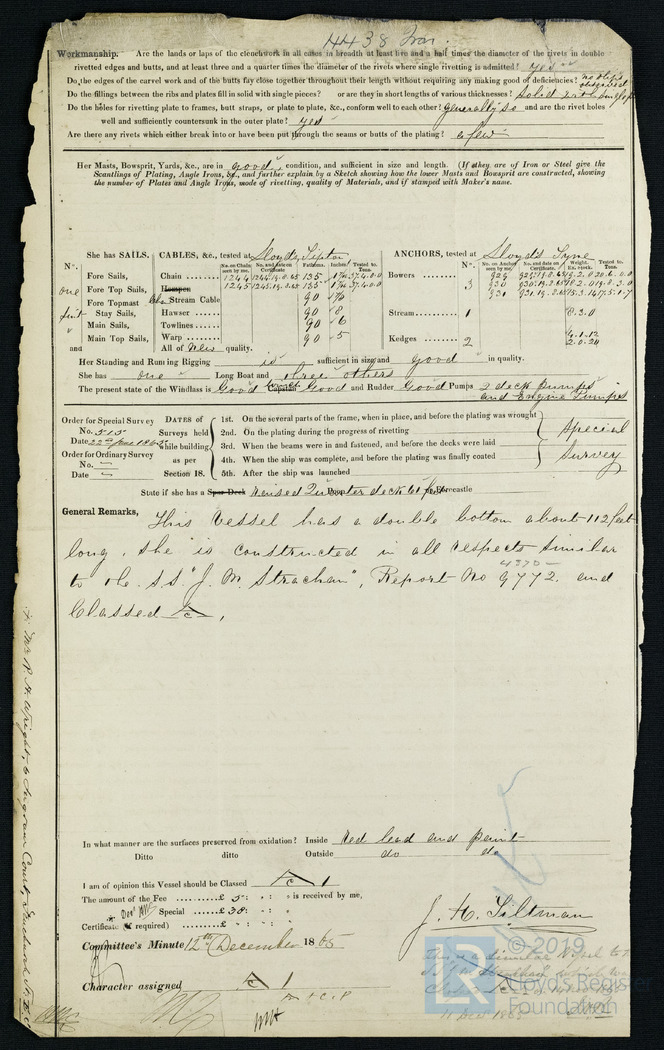 4438 Iron.
Workmanship. Are the lands or laps of the clenchwork in all cases in breadth at least five and a half times the diameter of the rivets in double
rivetted edges and butts, and at least three and a quarter times the diameter of the rivets where single rivetting is admitted? Yes
Do the edges of the carvel work and of the butts fay close together throughout their length without requiring any making good of deficiencies? no slips observed
Do the fillings between the ribs and plates fill in solid with single pieces? or are they in short lengths of various thicknesses? Solid
Do the holes for rivetting plate to frames, butt straps, or plate to plate, &c., conform well to each other? Generally so and are the rivet holes
well and sufficiently countersunk in the outer plate? Yes
Are there any rivets which either break into or have been put through the seams or butts of the plating? a few
Her Masts, Bowsprit, Yards, &c., are in good condition, and sufficient in size and length. (If they are of Iron or Steel give the
Scantlings of Plating, Angle Irons, &c., and further explain by a Sketch showing how the lower Masts and Bowsprit are constructed, showing
the number of Plates and Angle Irons, mode of rivetting, quality of Materials, and if stamped with Maker's name.
She has SAILS. CABLES, &c., tested at Lloyds Tipton ANCHORS, tested at Lloyds Tyne
No. No. on Chain seen by me. No. and date on Certificate Fathoms. Inches. Tested to Tons. No. No. on Anchor seen by me. No. and date on Certificate. Weight. Ex. stock. Tested to Tons.
Fore Sails, Chain 1244 135 Bowers 929
one Fore Top Sails, Hempen 1245 135 3 930
Fore Topmast Stream Cable 90 931
suit Stay Sails, Hawser 90 8 Stream 1 6.3.0
Main Sails, Towlines 90 6
and Main Top Sails, Warp 90 5 Kedges 2 2.0.24
All of New quality.
Her Standing and Running Rigging is sufficient in size and good in quality.
She has one Long Boat and three others
The present state of the Windlass is Good Winch Capstan Good and Rudder Good Pumps 2 deck Pumps
and Engine Pumps
Order for Special Survey No. 515 Date 22nd June 1865
Order for Ordinary Survey No. — Date —
DATES of Surveys held while building as per Section 18.
1st. On the several parts of the frame, when in place, and before the plating was wrought
2nd. On the plating during the progress of rivetting
3rd. When the beams were in and fastened, and before the decks were laid
4th. When the ship was complete, and before the plating was finally coated
5th. After the ship was launched
Special Survey
State if she has a Spar Deck Raised Quarter deck 61 feet Poop or Forecastle
General Remarks, This Vessel has a double bottom about 112 feet
long, she is constructed in all respects similar
4370
to the S.S. "J. M. Strachan", Report No 9772 and
Classed A C,
In what manner are the surfaces preserved from oxidation? Inside Red lead and paint
Ditto ditto Outside do do
I am of opinion this Vessel should be Classed A C 1
The amount of the Fee £ 5 : : is received by me,
Special £ 38 : :
Certificate (if required) £ : :
J. H. Tiltman
Committee's Minute 12th December 1865
Character assigned A C 1
A & C.P
This is a similar Vessel to the
SS J M Strachan
11 Dec 1865
© 2019
LR
Lloyd's Register
Foundation